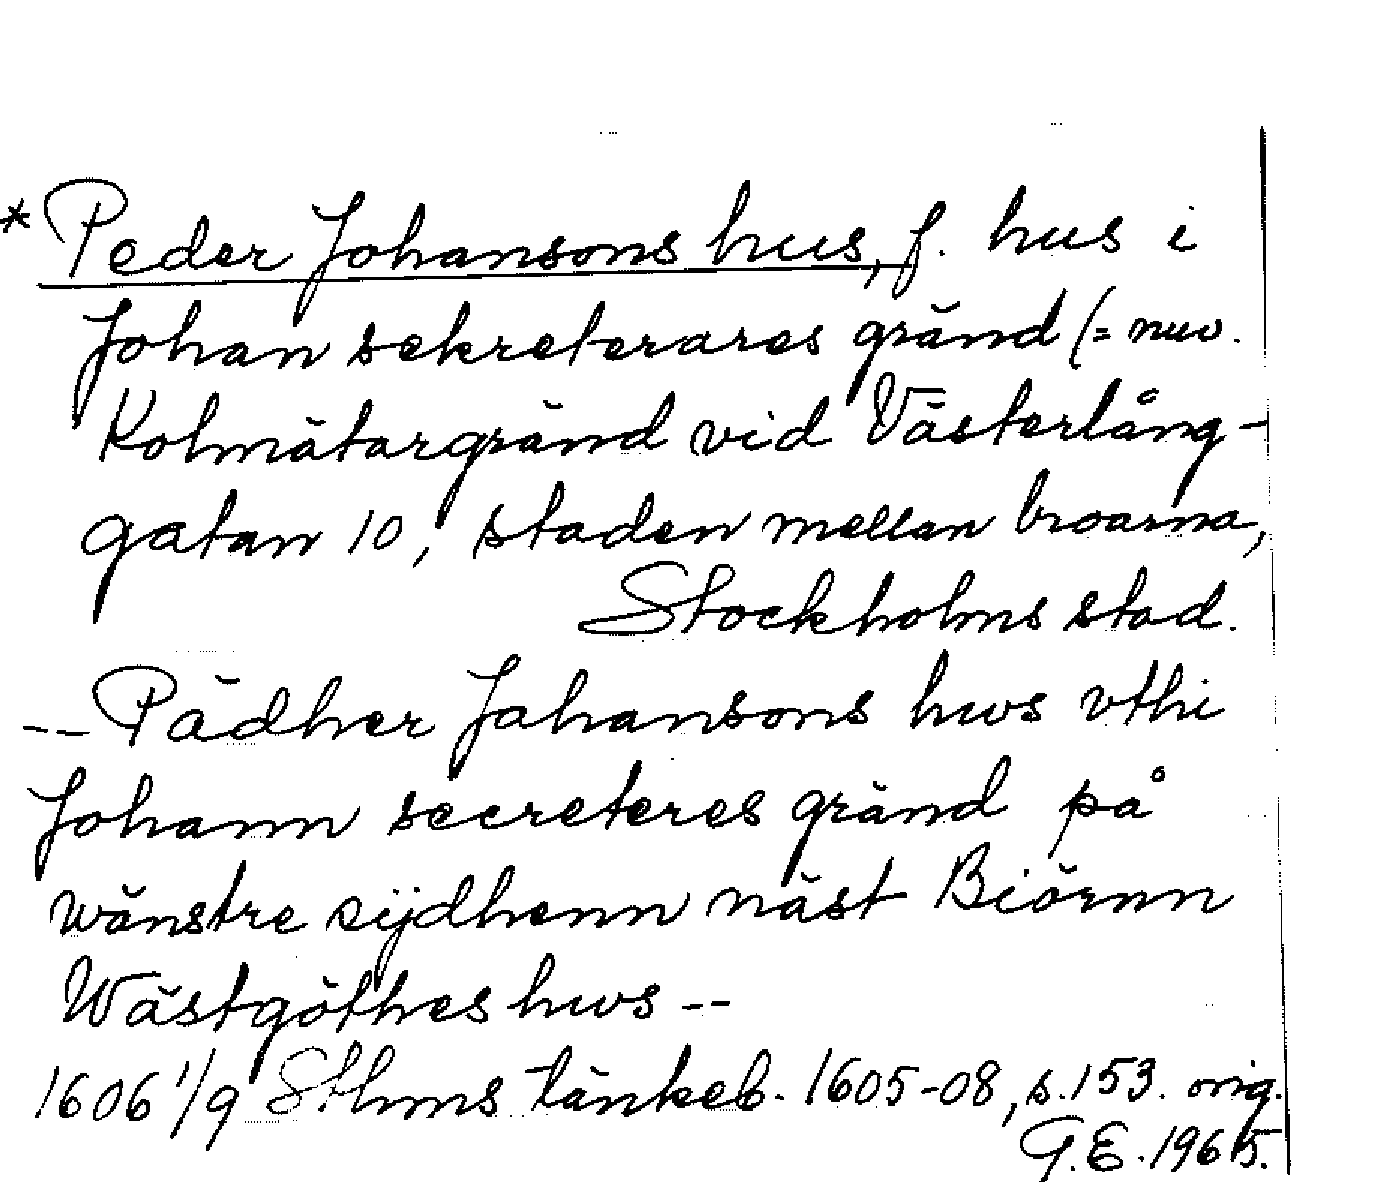 * Peder Johansons hus, f. hus i
Johan sekreterares gränd (= nuv.
Kolmätargränd vid Västerlång-
gatan 10, staden mellan broarna,
Stockholms stad.
-- Pädher Johansons hws vthi
Johann secreteres gränd på
wänstre sijdhenn näst Biörnn
Wästgöthes hws --
1606 1/9 Sthms tänkeb. 1605-08, s. 153. orig.
G.E. 1965.